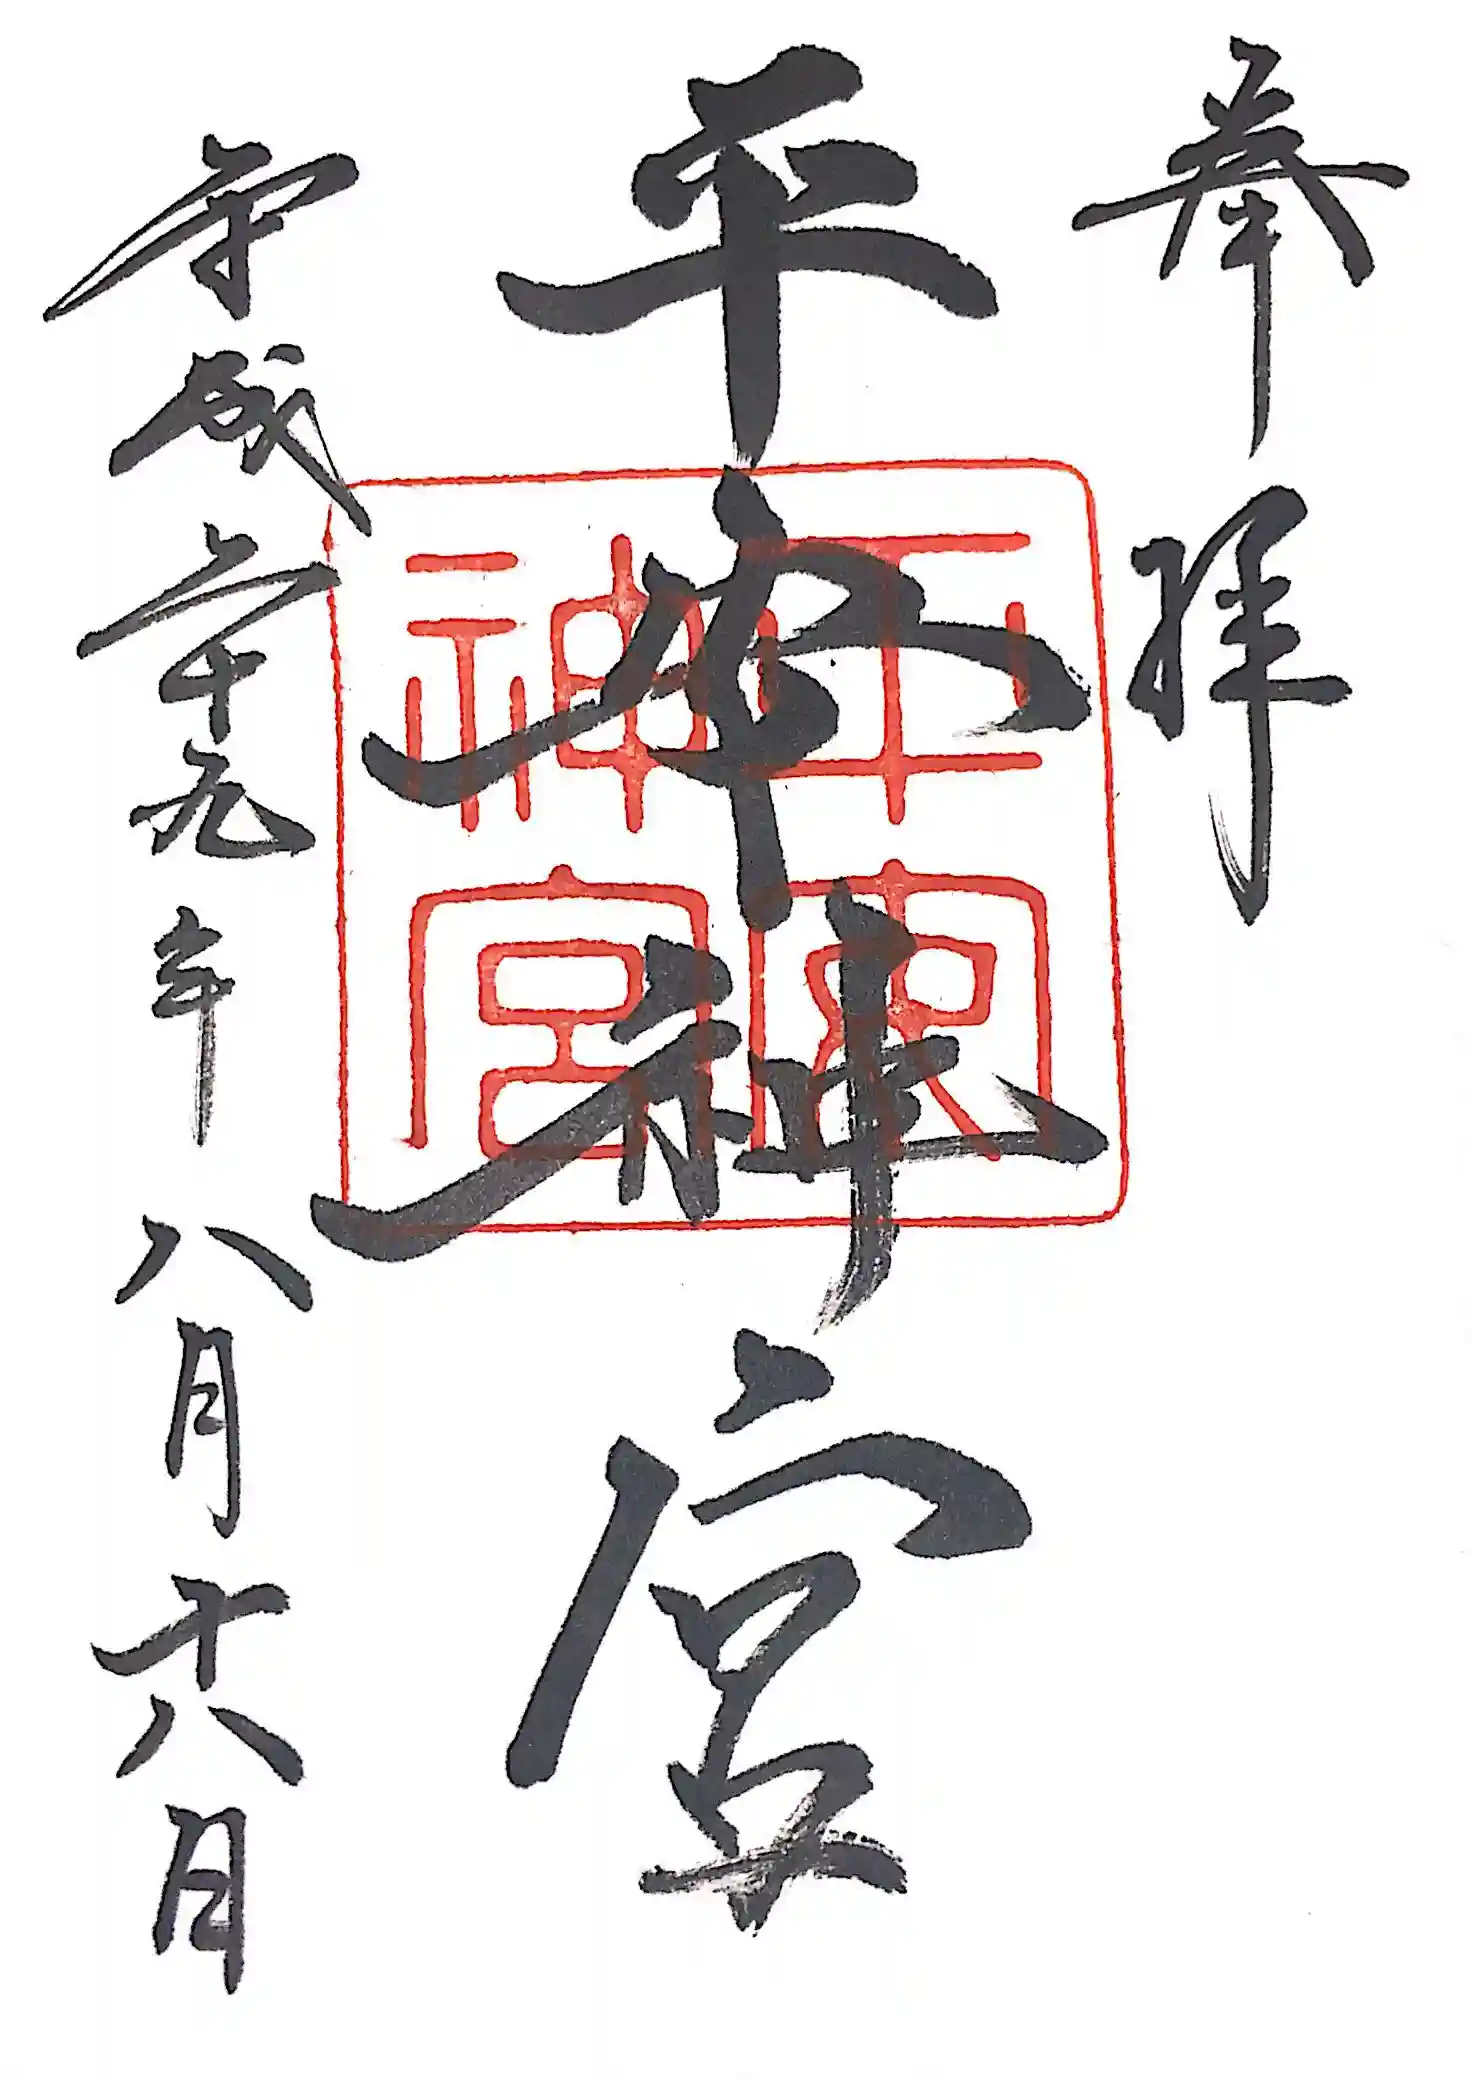 奉拝
平安神宮
平安神宮
平成二十九年八月十八日